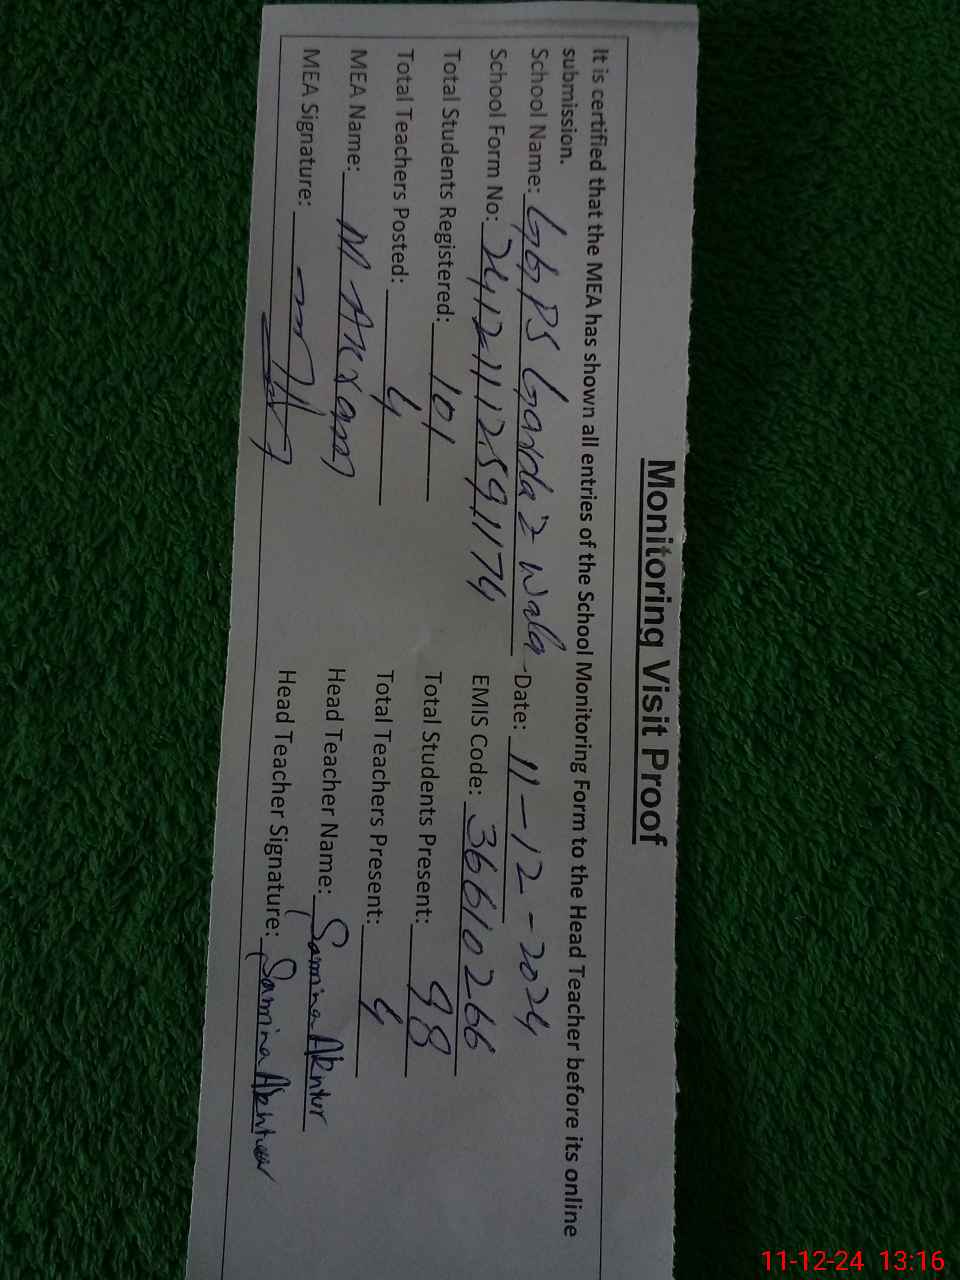 Monitoring Visit Proof
It is certified that the MEA has shown all entries of the School Monitoring Form to the Head Teacher before its online
submission.
School Name: GGPS Wala Date: 11-12-2024
School Form No: 24121112591174 EMIS Code: 36610266
Total Students Registered: 101 Total Students Present: 98
Total Teachers Posted: 4 Total Teachers Present: 4
MEA Name: M Akram Head Teacher Name: Samina Akhtar
MEA Signature: Head Teacher Signature: Samina Akhtar
11-12-24 13:16